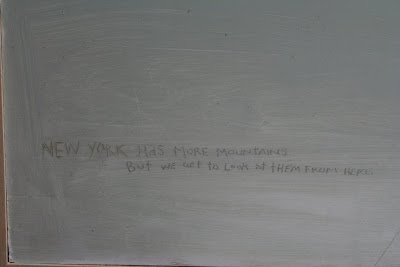 NEW YORK HAS MORE MOUNTAINS
BUT WE GET TO LOOK AT THEM FROM HERE